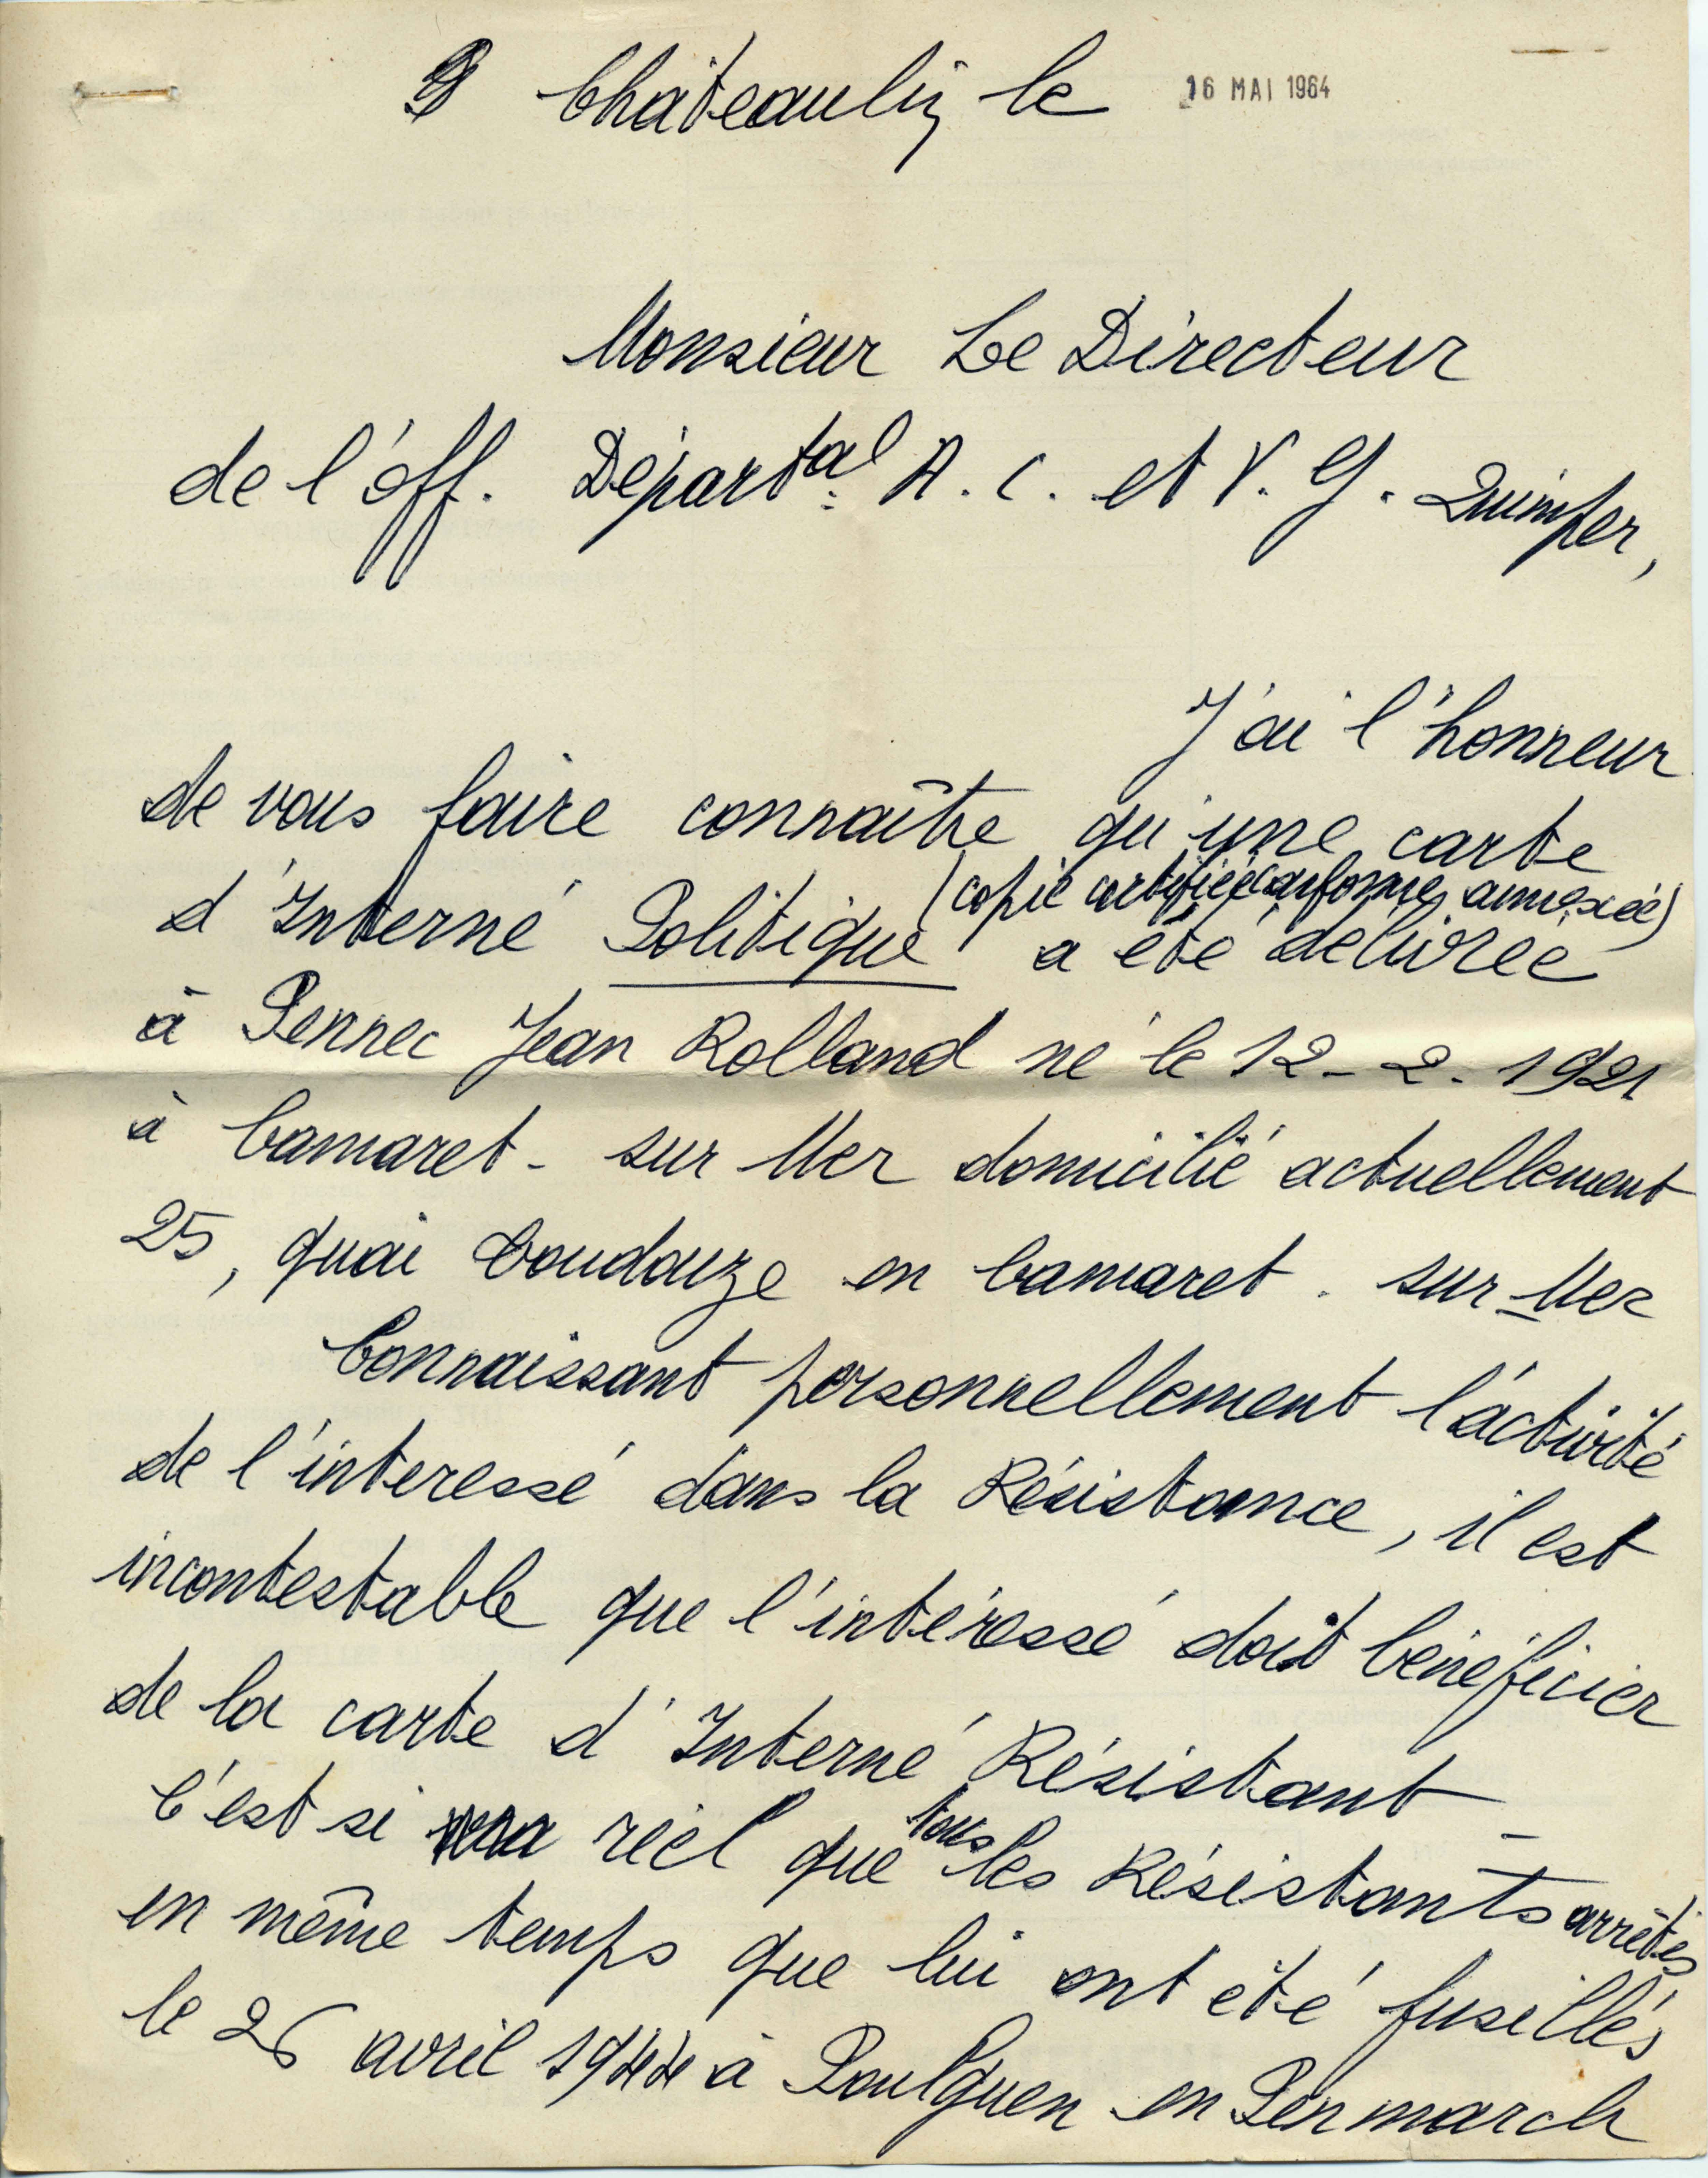 Châteaulin, le 16 MAI 1964
Monsieur Le Directeur
de l'Off. Départal A. C. et V. G. Quimper,
J'ai l'honneur
de vous faire connaître qu'une carte
(copie certifiée conforme annexée)
d'Interné Politique a été délivrée
à Pennec Jean Rolland né le 12-2-1921
à Camaret-sur Mer domicilié actuellement
25, quai en Camaret-sur-Mer
Connaissant personnellement l'activité
de l'interessé dans la Résistance, il est
incontestable que l'intéressé doit bénéficier
de la carte d'Interné Résistant_
C'est si réel que tous les Résistants arrêtés
en même temps que lui ont été fusillés
le avril 1944 à Poulguen en Penmarch